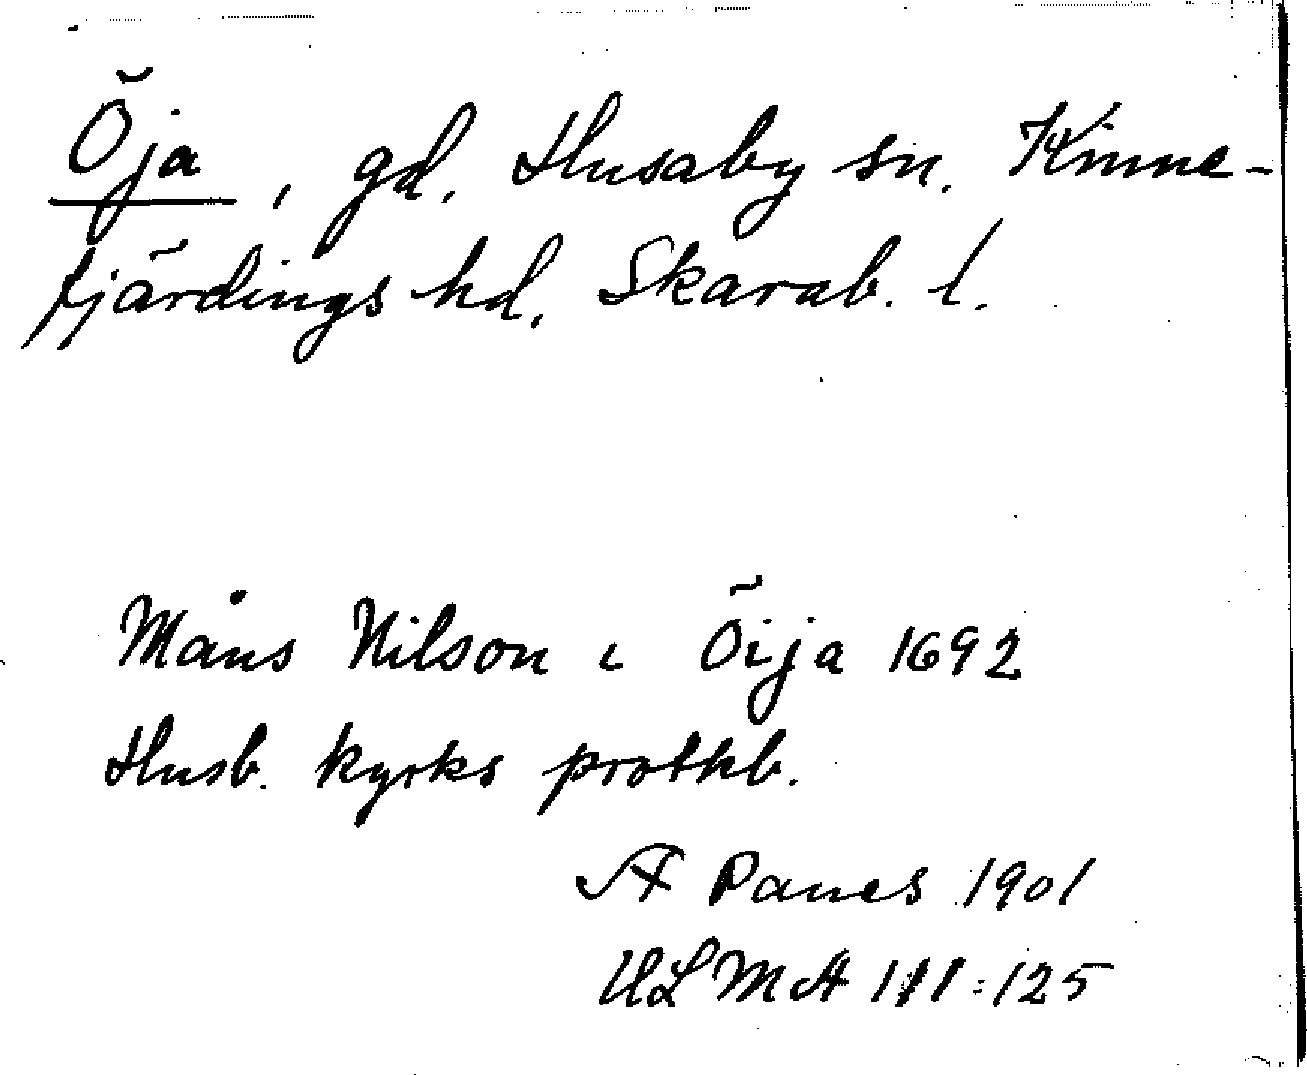 Öja, gd. Husaby sn. Kinne-
fjärdings hd, Skarab. l.
Måns Nilson i Öija 1692
Husb. kyrks protkb.
A Panes 1901
ULMA 111:125